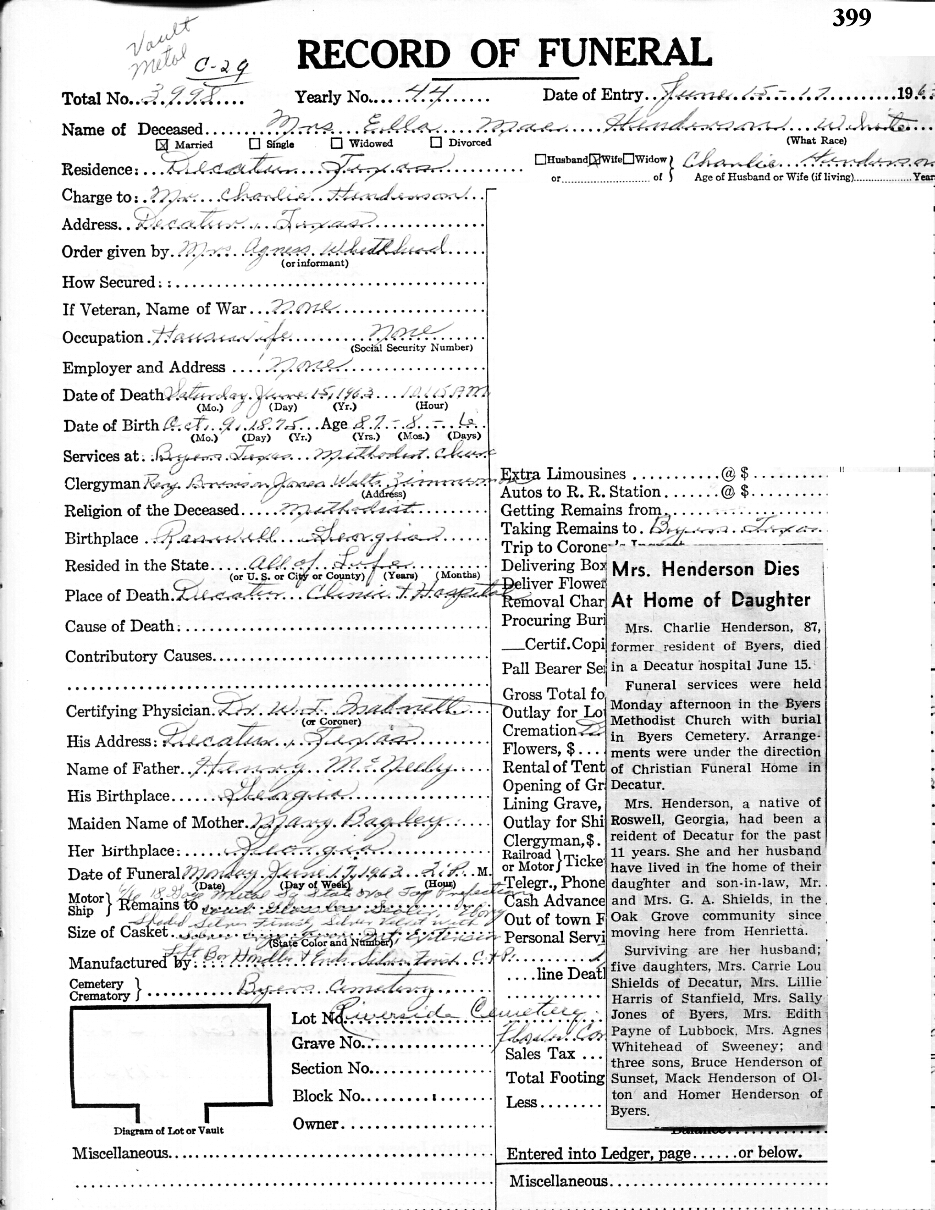 399
Vault
Metal
C-29
RECORD OF FUNERAL
Total No. 3998 Yearly No. 44 Date of Entry June 15-17 196
Name of Deceased Mrs Ella Mae Henderson White
(What Race)
☒ Married ☐ Single ☐ Widowed ☐ Divorced
Residence: Decatur Texas ☐Husband ☒Wife ☐Widow } Charlie Henderson
or of Age of Husband or Wife (if living) Year
Charge to: Mr. Charlie Henderson
Address Decatur, Texas
Order given by Mrs Agness Whitehead
(or informant)
How Secured:
If Veteran, Name of War none
Occupation Housewife None
(Social Security Number)
Employer and Address none
Date of Death Saturday June 15, 1963 10:15 PM
(Mo.) (Day) (Yr.) (Hour)
Date of Birth Oct. 9, 1875 Age 87 - 8 - 6
(Mo.) (Day) (Yr.) (Yrs.) (Mos.) (Days)
Services at: Byers Texas Methodist Church
Clergyman Rev.
(Address)
Religion of the Deceased Methodist
Birthplace Roswell Georgia
Resided in the State All of Life
(or U. S. or City or County) (Years) (Months)
Place of Death Decatur Clinic & Hospital
Cause of Death:
Contributory Causes
Certifying Physician Dr. W. J.
(or Coroner)
His Address: Decatur, Texas
Name of Father Henry McNeely
His Birthplace Georgia
Maiden Name of Mother Mary Bagley
Her Birthplace: Georgia
Date of Funeral Monday June 17, 1963 2:P. M.
(Date) (Day of Week) (Hour)
Motor } Remains to
Ship
18 Ga Metal Sq Oval Top
Shaded Silver Finish Silver
Size of Casket
(State Color and Number)
Manufactured by
Cemetery } Byers Cemetery
Crematory
Riverside Cemetery
Lot No.
Grave No.
Section No.
Block No.
Owner
Diagram of Lot or Vault
Miscellaneous
Extra Limousines @ $
Autos to R. R. Station @ $
Getting Remains from
Taking Remains to Byers Texas
Trip to Coroner's Inquest
Delivering Box
Deliver Flower
Removal Char
Procuring Buri
Certif. Copi
Pall Bearer Se
Gross Total fo
Outlay for Lo
Cremation
Flowers, $
Rental of Tent
Opening of Gr
Lining Grave,
Outlay for Shi
Clergyman, $
Railroad } Ticke
or Motor
Telegr., Phone
Cash Advance
Out of town F
Personal Servi
line Deatl
Sales Tax
Total Footing
Less
Balance
Entered into Ledger, page or below.
Miscellaneous
Mrs. Henderson Dies
At Home of Daughter
Mrs. Charlie Henderson, 87,
former resident of Byers, died
in a Decatur hospital June 15.
Funeral services were held
Monday afternoon in the Byers
Methodist Church with burial
in Byers Cemetery. Arrange-
ments were under the direction
of Christian Funeral Home in
Decatur.
Mrs. Henderson, a native of
Roswell, Georgia, had been a
reident of Decatur for the past
11 years. She and her husband
have lived in the home of their
daughter and son-in-law, Mr.
and Mrs. G. A. Shields, in the
Oak Grove community since
moving here from Henrietta.
Surviving are her husband;
five daughters, Mrs. Carrie Lou
Shields of Decatur, Mrs. Lillie
Harris of Stanfield, Mrs. Sally
Jones of Byers, Mrs. Edith
Payne of Lubbock, Mrs. Agnes
Whitehead of Sweeney; and
three sons, Bruce Henderson of
Sunset, Mack Henderson of Ol-
ton and Homer Henderson of
Byers.